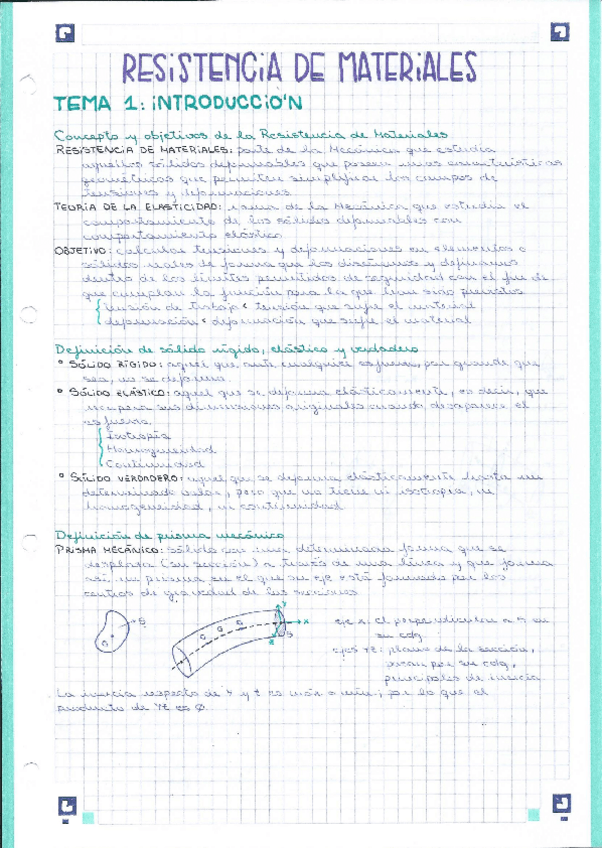 RESISTENCIA DE MATERIALES
TEMA 1: INTRODUCCIO'N
Concepto y objetivos de la Resistencia de Materiales
RESISTENCIA DE MATERIALES: parte de la Mecánica que estudia
aquellos sólidos deformables que poseen unas características
geométricas que permiten simplificar los campos de
tensiones y deformaciones.
TEORÍA DE LA ELASTICIDAD: rama de la Mecánica que estudia el
comportamiento de los sólidos deformables con
comportamiento elástico.
OBJETIVO: calcular tensiones y deformaciones en elementos o
sólidos reales de forma que los diseñemos y definamos
dentro de los límites permitidos de seguridad con el fin de
que cumplan la función para la que han sido previstos
tensión de trabajo < tensión que sufre el material
deformación < deformación que sufre el material
Definición de sólido rígido, elástico y verdadero
° SÓLIDO RÍGIDO: aquel que ante cualquier esfuerzo, por grande que
sea, no se deforma.
° SÓLIDO ELÁSTICO: aquel que se deforma elásticamente, es decir, que
recupera sus dimensiones originales cuando desaparece el
esfuerzo.
Isotropía
Homogeneidad
Continuidad
° SÓLIDO VERDADERO: aquel que se deforma elásticamente hasta un
determinado valor, pero que no tiene ni isotropía, ni
homogeneidad, ni continuidad.
Definición de prisma mecánico
PRISMA MECÁNICO: sólido con una determinada forma que se
desplaza (su sección) a través de una línea y que forma
así un prisma en el que su eje está formado por los
centros de gravedad de las secciones
S
G G G
y
x
z
S
eje x: el perpendicular a S en
su cdg
ejes yz: plano de la sección,
pasan por su cdg,
principales de inercia.
La inercia respecto de y z es máx o mín, por lo que el
producto de yz es 0.